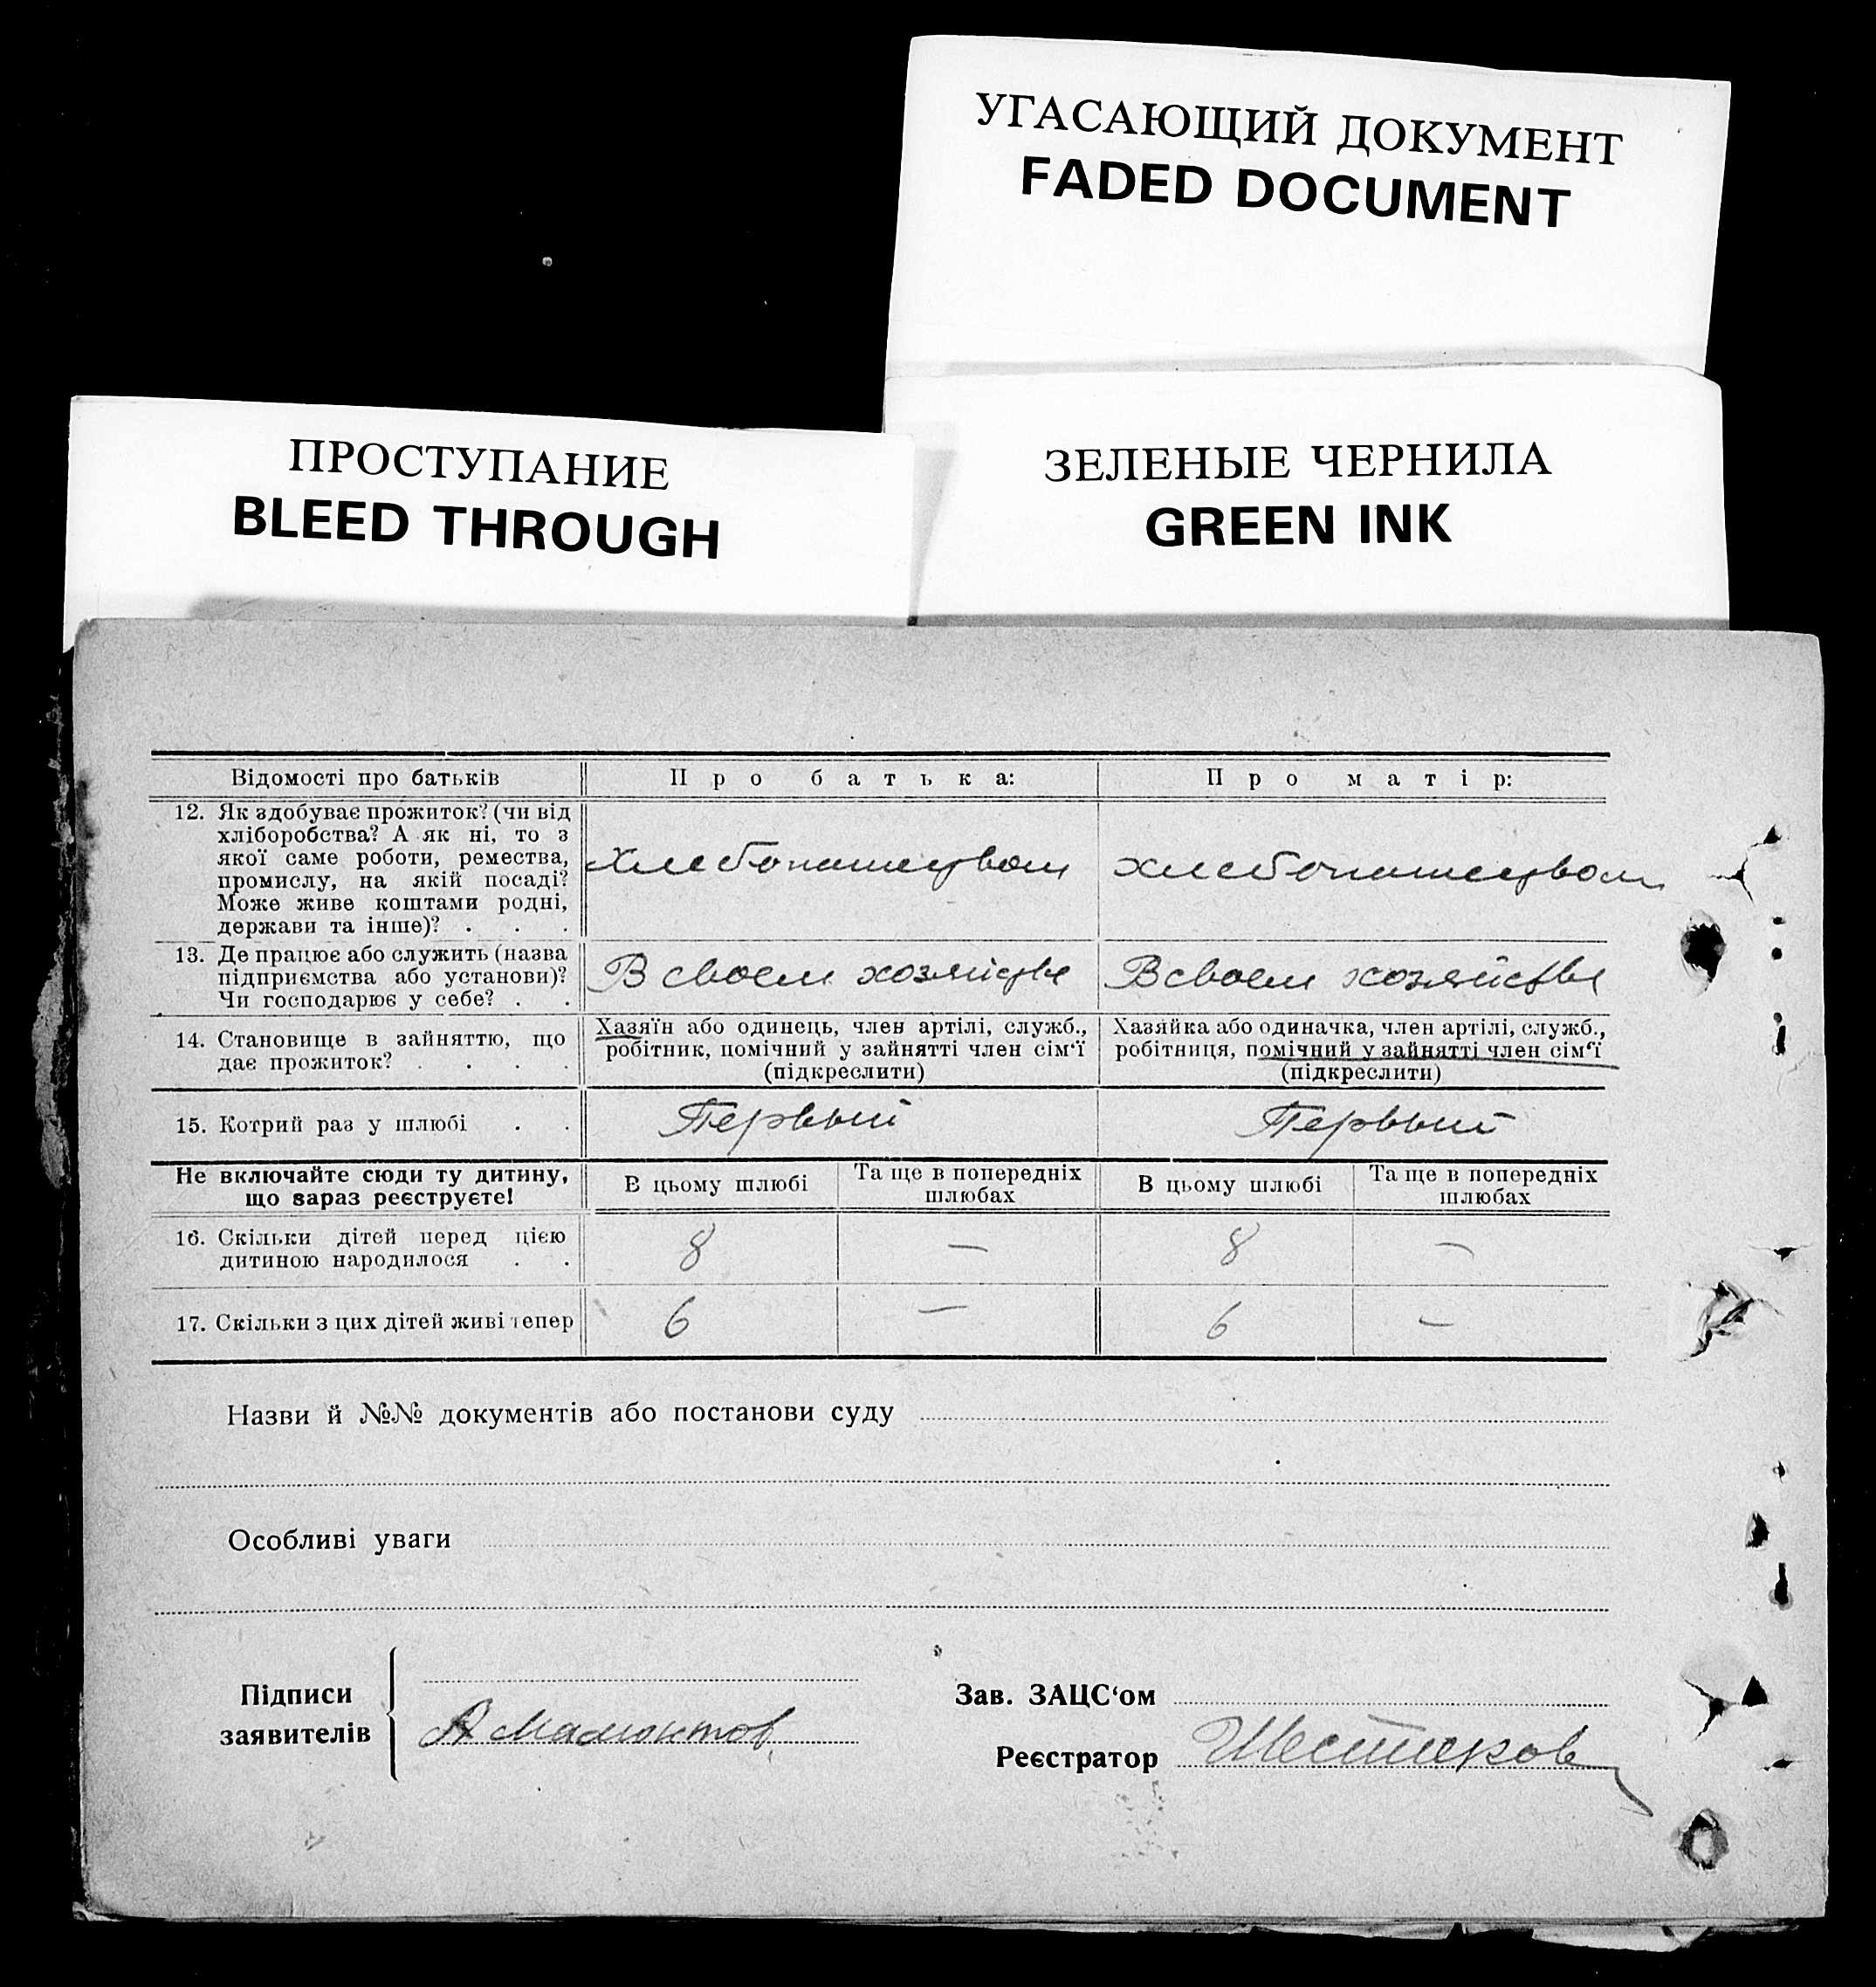 УГАСАЮЩИЙ ДОКУМЕНТ
FADED DOCUMENT
ПРОСТУПАНИЕ
BLEED THROUGH
ЗЕЛЕНЫЕ ЧЕРНИЛА
GREEN INK
Відомості про батьків
Про батька:
Про матір:
12. Як здобуває прожиток? (чи від
хліборобства? А як ні, то з
якої саме роботи, ремества,
промислу, на якій посаді?
Може живе коштами родні,
держави та інше)? . . .
Хлебопашеством
хлебопашеством
13. Де працює або служить (назва
підприємства або установи)?
Чи господарює у себе? . .
В своем хозяйстве
В своем хозяйстве
14. Становище в зайняттю, що
дає прожиток? . . . .
Хазяїн або одинець, член артілі, служб.,
робітник, помічний у зайнятті член сім‘ї
(підкреслити)
Хазяйка або одиначка, член артілі, служб.,
робітниця, помічний у зайнятті член сім‘ї
(підкреслити)
15. Котрий раз у шлюбі . .
Первый
Первый
Не включайте сюди ту дитину,
що зараз реєструєте!
В цьому шлюбі
Та ще в попередніх
шлюбах
В цьому шлюбі
Та ще в попередніх
шлюбах
16. Скільки дітей перед цією
дитиною народилося . .
8
—
8
—
17. Скільки з цих дітей живі тепер
6
—
6
—
Назви й №№ документів або постанови суду
Особливі уваги
Підписи
заявителів
А Мамонтов
Зав. ЗАЦС‘ом
Реєстратор
Шестеров